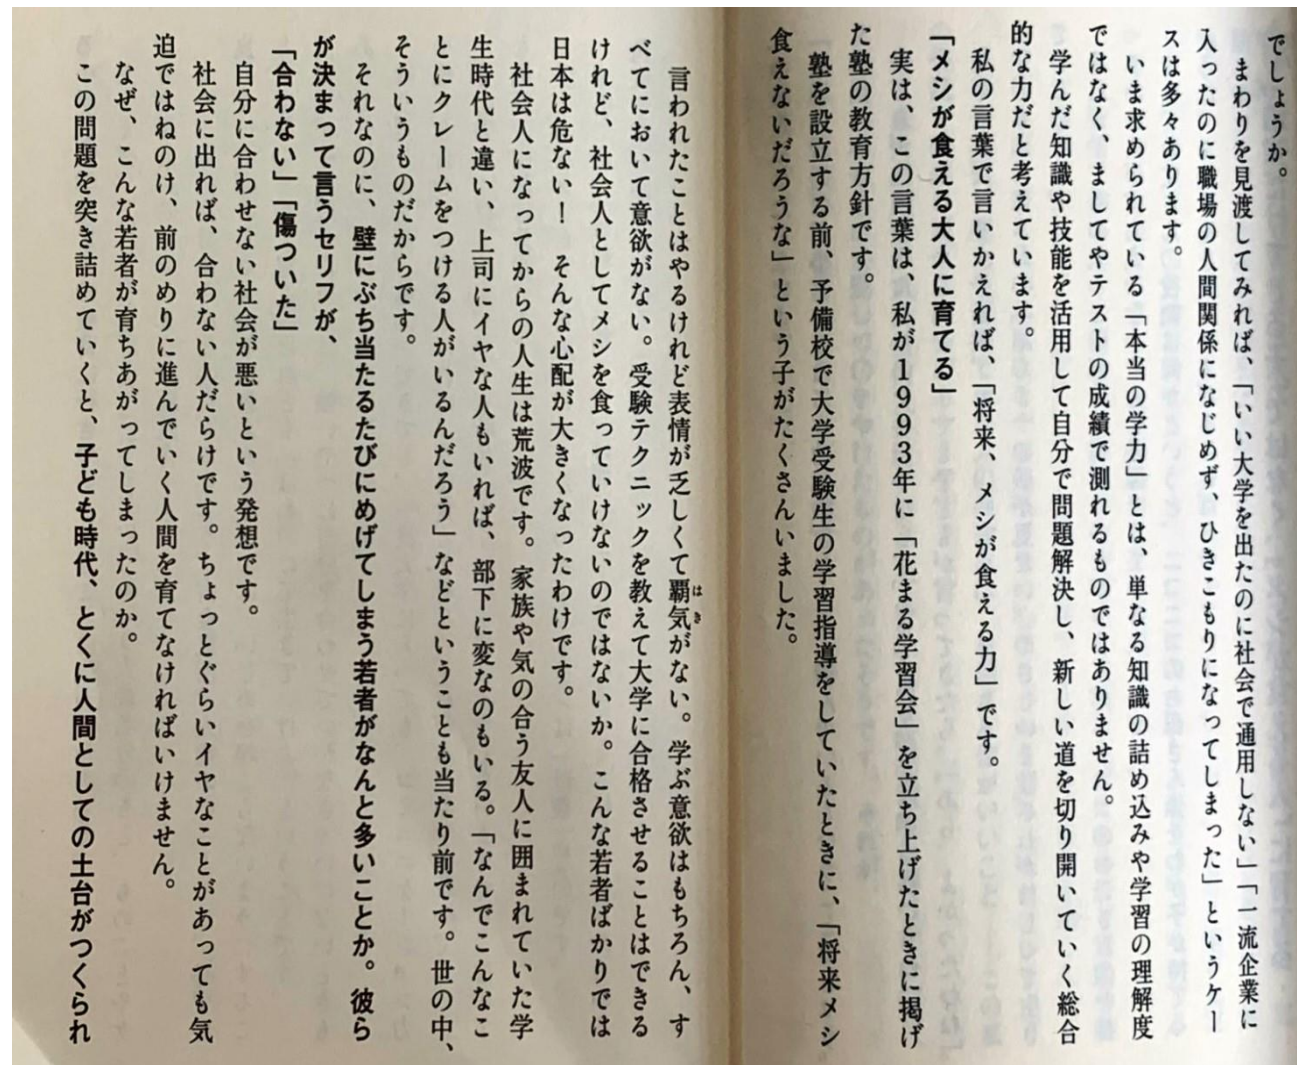 でしょうか。
まわりを見渡してみれば、「いい大学を出たのに社会で通用しない」「一流企業に
入ったのに職場の人間関係になじめず、ひきこもりになってしまった」というケー
スは多々あります。
いま求められている「本当の学力」とは、単なる知識の詰め込みや学習の理解度
ではなく、ましてやテストの成績で測れるものではありません。
学んだ知識や技能を活用して自分で問題解決し、新しい道を切り開いていく総合
的な力だと考えています。
私の言葉で言いかえれば、「将来、メシが食える力」です。
「メシが食える大人に育てる」
実は、この言葉は、私が1993年に「花まる学習会」を立ち上げたときに掲げ
た塾の教育方針です。
塾を設立する前、予備校で大学受験生の学習指導をしていたときに、「将来メシ
食えないだろうな」という子がたくさんいました。
言われたことはやるけれど表情が乏しくて覇気がない。学ぶ意欲はもちろん、す
はき
べてにおいて意欲がない。受験テクニックを教えて大学に合格させることはできる
けれど、社会人としてメシを食っていけないのではないか。こんな若者ばかりでは
日本は危ない！　そんな心配が大きくなったわけです。
社会人になってからの人生は荒波です。家族や気の合う友人に囲まれていた学
生時代と違い、上司にイヤな人もいれば、部下に変なのもいる。「なんでこんなこ
とにクレームをつける人がいるんだろう」などということも当たり前です。世の中、
そういうものだからです。
それなのに、壁にぶち当たるたびにめげてしまう若者がなんと多いことか。彼ら
が決まって言うセリフが、
「合わない」「傷ついた」
自分に合わせない社会が悪いという発想です。
社会に出れば、合わない人だらけです。ちょっとぐらいイヤなことがあっても気
迫ではねのけ、前のめりに進んでいく人間を育てなければいけません。
なぜ、こんな若者が育ちあがってしまったのか。
この問題を突き詰めていくと、子ども時代、とくに人間としての土台がつくられ